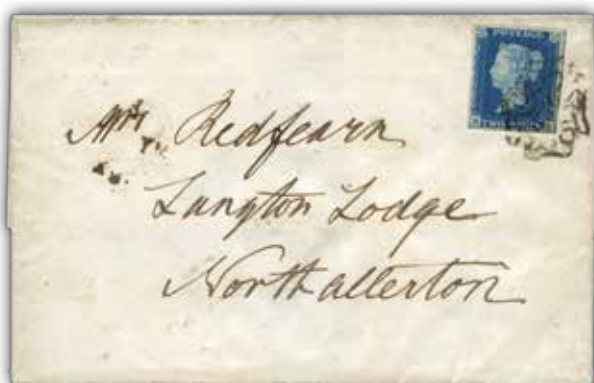 POSTAGE
Mrs Redfearn
Langton Lodge
Northallerton